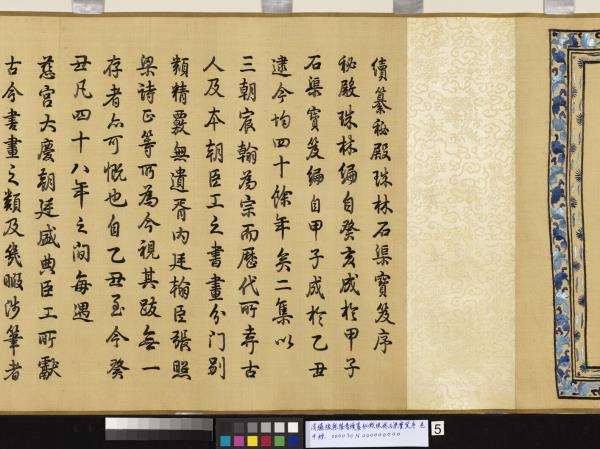 續纂秘殿珠林石渠寶笈序
秘殿珠林編自癸亥成於甲子
石渠寶笈編自甲子成於乙丑
逮今均四十餘年矣二集以
三朝宸翰為宗而歷代所弆古
人及本朝臣工之書畫分門別
類精覈無遺胥內廷翰臣張照
梁詩正等所為今視其跋無一
存者亦可慨也自乙丑至今癸
丑凡四十八年之間每遇
慈宮大慶朝廷盛典臣工所獻
古今書畫之類及幾暇涉筆者
5